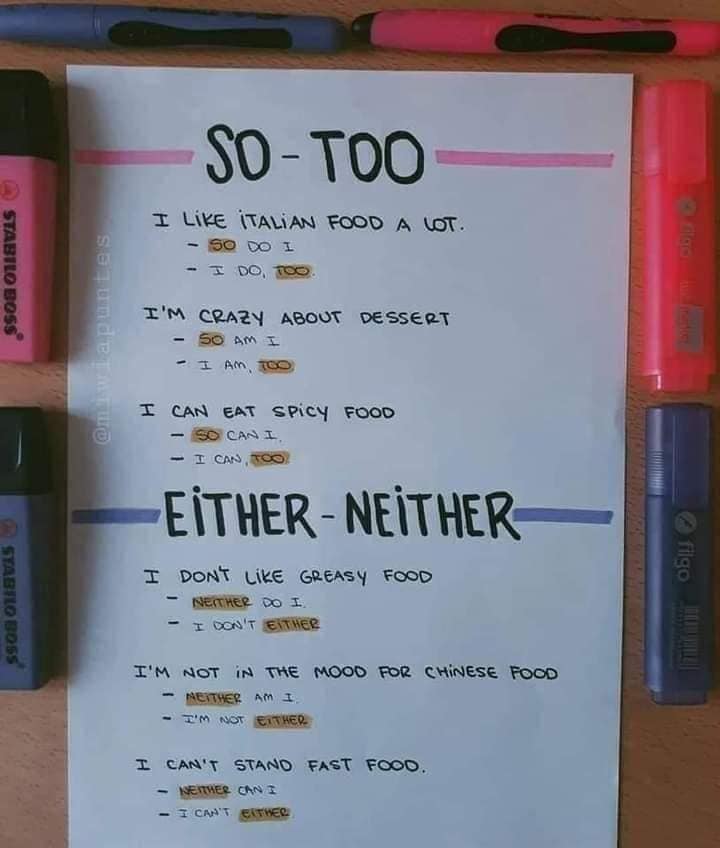 SO - TOO
I LIKE ITALIAN FOOD A LOT.
- SO DO I
- I DO, TOO.
I'M CRAZY ABOUT DESSERT
- SO AM I
- I AM, TOO
I CAN EAT SPICY FOOD
- SO CAN I.
- I CAN, TOO
EITHER - NEITHER
I DON'T LIKE GREASY FOOD
- NEITHER DO I.
- I DON'T EITHER
I'M NOT IN THE MOOD FOR CHINESE FOOD
- NEITHER AM I.
- I'M NOT EITHER
I CAN'T STAND FAST FOOD.
- NEITHER CAN I
- I CAN'T EITHER
@miwiapuntes
STABILO BOSS
STABILO BOSS
filgo
filgo